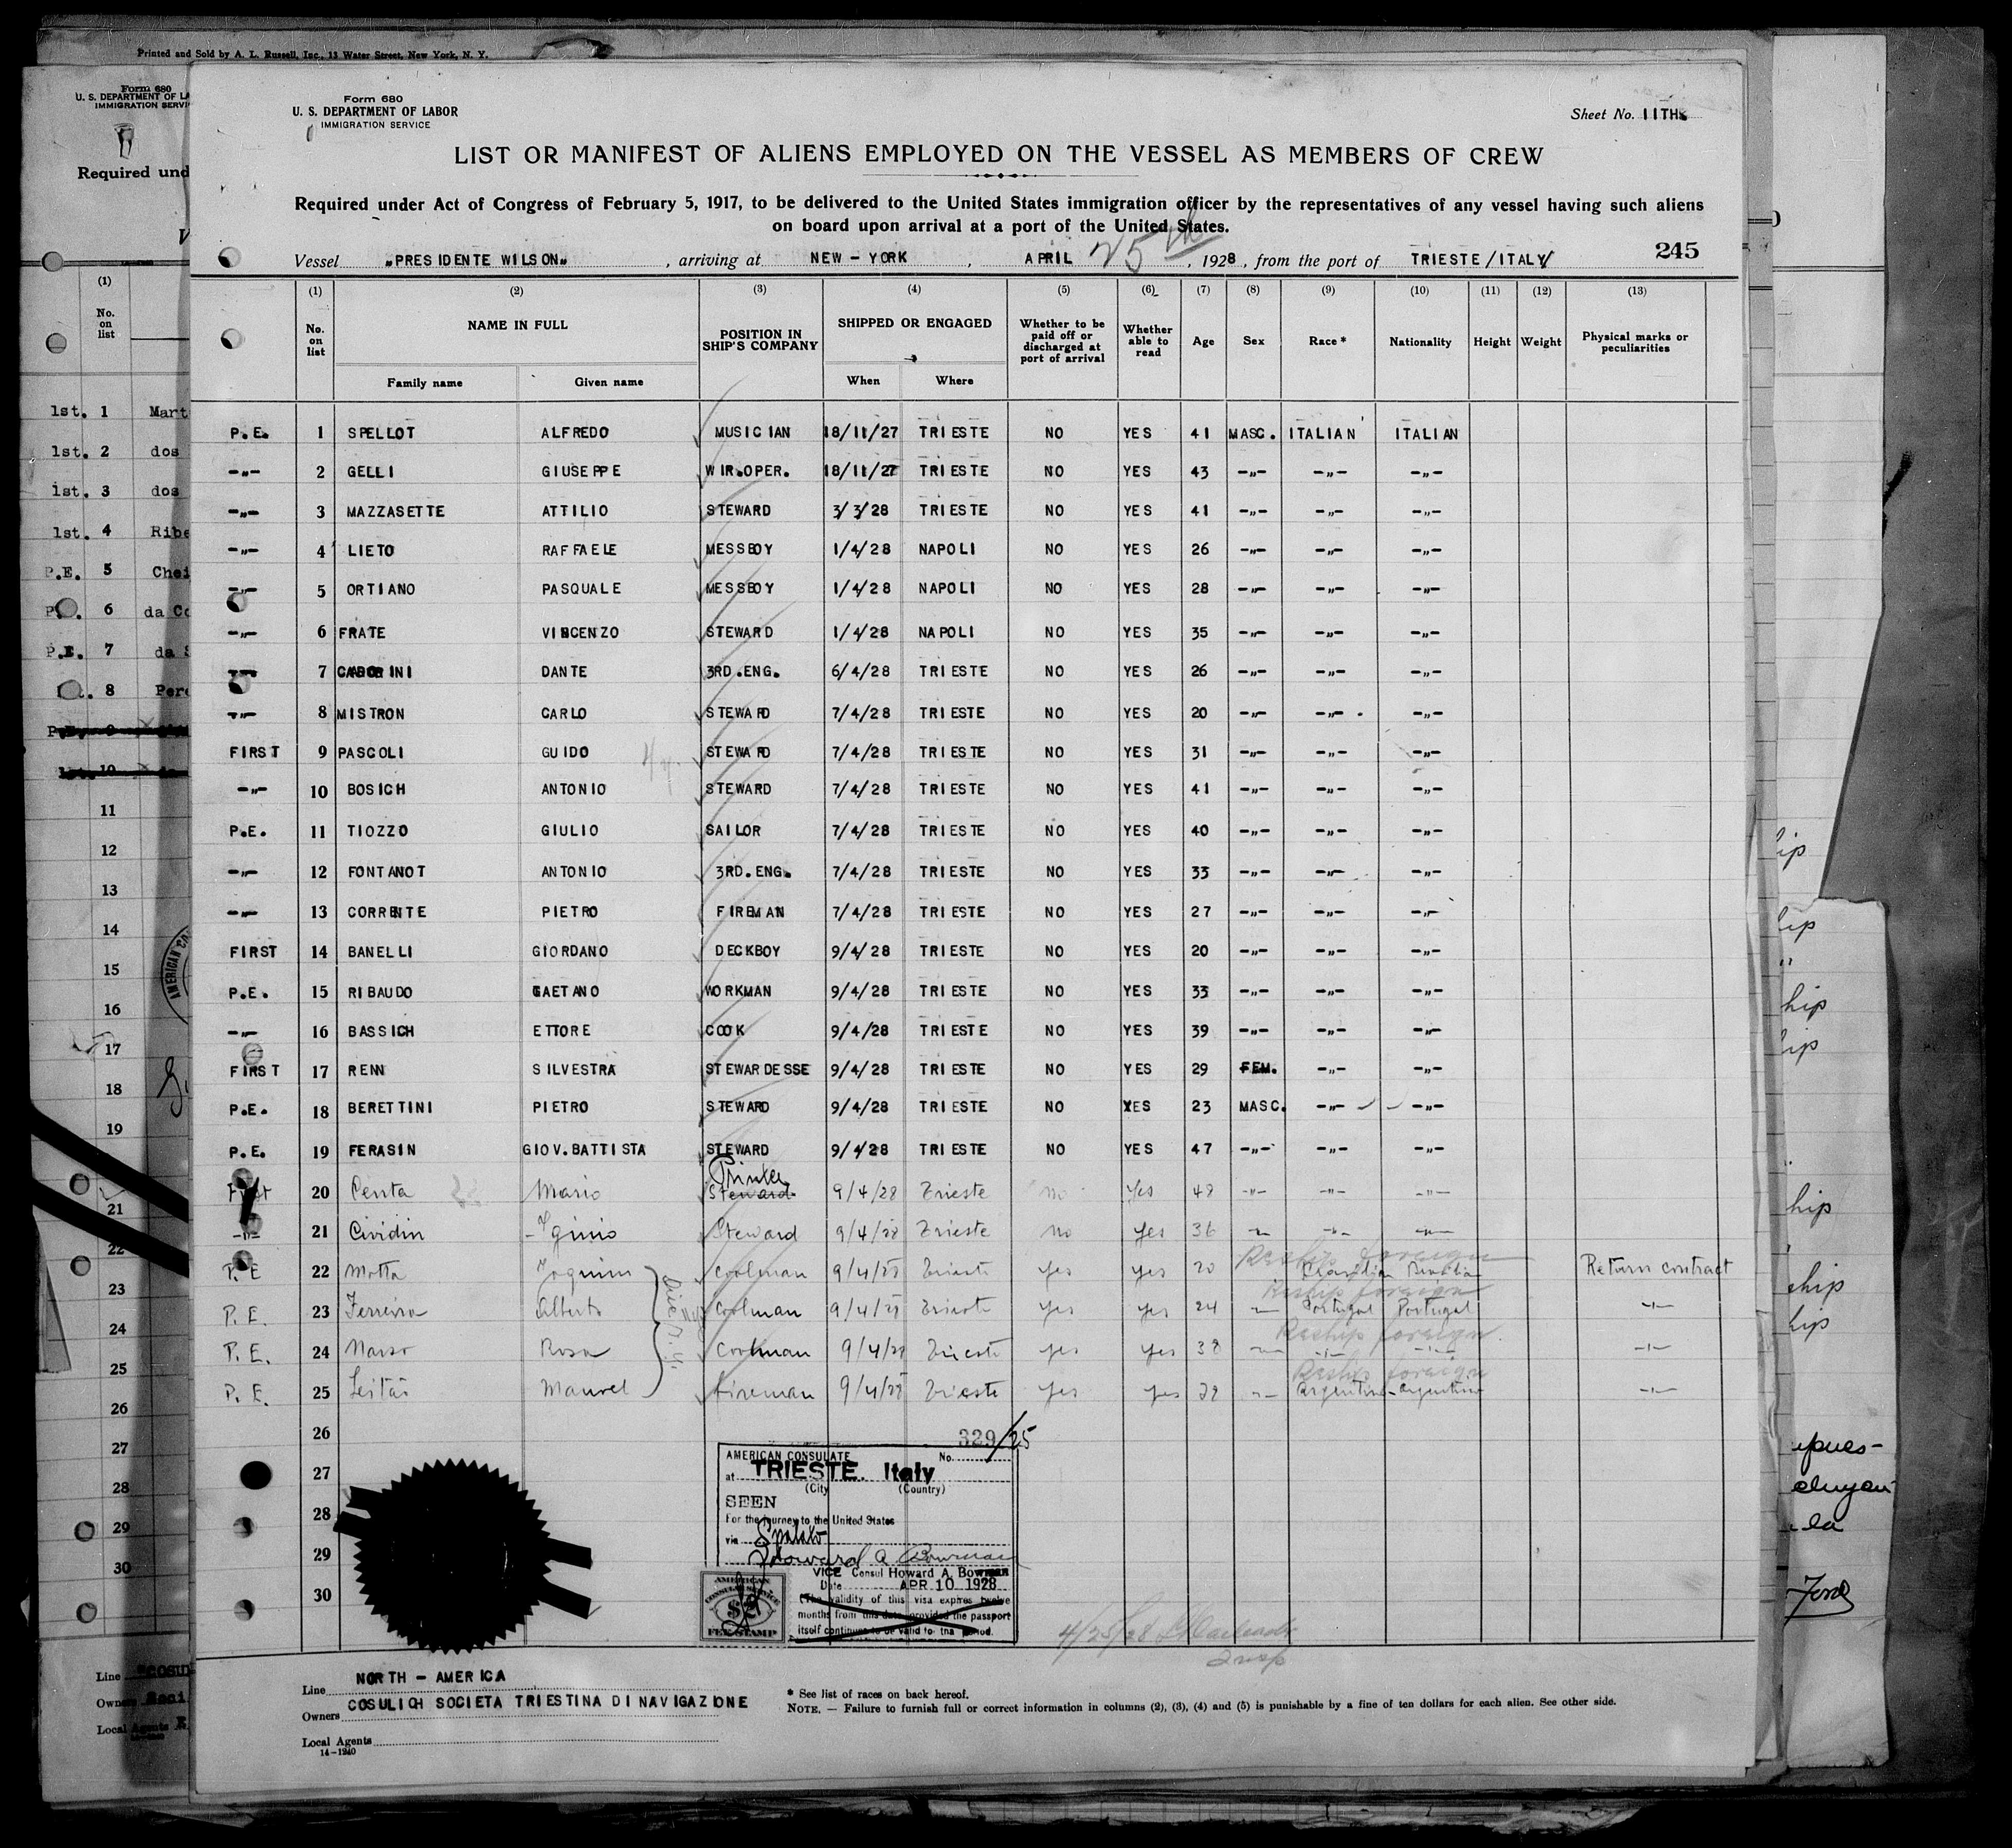 Printed and Sold by A. L. Russell, Inc., 13 Water Street, New York, N. Y.
Form 680
U. S. DEPARTMENT OF LA
IMMIGRATION SERVI
Required und
(1)
No. on list
1st. 1 Mart
1st. 2 dos
1st. 3 dos
1st. 4 Ribe
P.E. 5 Chei
6 da Co
P.E. 7 da S
8 Pere
11
12
13
14
15
16
17
18
19
21
22
23
24
25
26
27
28
29
30
Line
Owners
Local Agents
Form 680
U. S. DEPARTMENT OF LABOR
IMMIGRATION SERVICE
Sheet No. 11TH
LIST OR MANIFEST OF ALIENS EMPLOYED ON THE VESSEL AS MEMBERS OF CREW
Required under Act of Congress of February 5, 1917, to be delivered to the United States immigration officer by the representatives of any vessel having such aliens
on board upon arrival at a port of the United States.
Vessel „PRESIDENTE WILSON„ , arriving at NEW-YORK , APRIL 25th , 1928 , from the port of TRIESTE/ITALY/ 245
(1) (2) (3) (4) (5) (6) (7) (8) (9) (10) (11) (12) (13)
No. on list NAME IN FULL POSITION IN SHIP'S COMPANY SHIPPED OR ENGAGED Whether to be paid off or discharged at port of arrival Whether able to read Age Sex Race * Nationality Height Weight Physical marks or peculiarities
Family name Given name When Where
P.E. 1 SPELLOT ALFREDO MUSICIAN 18/11/27 TRIESTE NO YES 41 MASC. ITALIAN ITALIAN
-„- 2 GELLI GIUSEPPE WIR.OPER. 18/11/27 TRIESTE NO YES 43 -„- -„- -„-
-„- 3 MAZZASETTE ATTILIO STEWARD 3/3/28 TRIESTE NO YES 41 -„- -„- -„-
-„- 4 LIETO RAFFAELE MESSBOY 1/4/28 NAPOLI NO YES 26 -„- -„- -„-
-„- 5 ORTIANO PASQUALE MESSBOY 1/4/28 NAPOLI NO YES 28 -„- -„- -„-
-„- 6 FRATE VINCENZO STEWARD 1/4/28 NAPOLI NO YES 35 -„- -„- -„-
-„- 7 DANTE 3RD.ENG. 6/4/28 TRIESTE NO YES 26 -„- -„- -„-
-„- 8 MISTRON CARLO STEWARD 7/4/28 TRIESTE NO YES 20 -„- -„- -„-
FIRST 9 PASCOLI GUIDO STEWARD 7/4/28 TRIESTE NO YES 31 -„- -„- -„-
-„- 10 BOSICH ANTONIO STEWARD 7/4/28 TRIESTE NO YES 41 -„- -„- -„-
P.E. 11 TIOZZO GIULIO SAILOR 7/4/28 TRIESTE NO YES 40 -„- -„- -„-
-„- 12 FONTANOT ANTONIO 3RD.ENG. 7/4/28 TRIESTE NO YES 33 -„- -„- -„-
-„- 13 CORRENTE PIETRO FIREMAN 7/4/28 TRIESTE NO YES 27 -„- -„- -„-
FIRST 14 BANELLI GIORDANO DECKBOY 9/4/28 TRIESTE NO YES 20 -„- -„- -„-
P.E. 15 RIBAUDO GAETANO WORKMAN 9/4/28 TRIESTE NO YES 33 -„- -„- -„-
-„- 16 BASSICH ETTORE COOK 9/4/28 TRIESTE NO YES 39 -„- -„- -„-
FIRST 17 RENN SILVESTRA STEWARDESSE 9/4/28 TRIESTE NO YES 29 FEM. -„- -„-
P.E. 18 BERETTINI PIETRO STEWARD 9/4/28 TRIESTE NO YES 23 MASC. -„- -„-
P.E. 19 FERASIN GIOV.BATTISTA STEWARD 9/4/28 TRIESTE NO YES 47 -„- -„- -„-
Printer
First 20 Penta Mario Steward 9/4/28 Trieste no Yes 48 -„- -„- -„-
-„- 21 Cividin Iginio Steward 9/4/28 Trieste no yes 36 -„- -„- -„-
Reship foreign
P.E 22 Motta Joquim Coolman 9/4/28 Trieste yes yes 20 Brasilian Brasilian Return contract
Reship foreign
P.E. 23 Ferreira Alberto Coolman 9/4/28 Trieste yes yes 24 -„- Portugal Portugal -„-
Reship foreign
P.E. 24 Rosa Coolman 9/4/28 Trieste yes yes 38 -„- -„- -„- -„-
Reship foreign
P.E. 25 Leitão Manuel fireman 9/4/28 Trieste yes yes -„- argentine argentine -„-
26
27
28
29
30
329/25
AMERICAN CONSULATE No.
at TRIESTE, Italy
(City) (Country)
SEEN
For the journey to the United States
via Spalato
Howard A Bowman
VICE Consul Howard A. Bowman
Date APR 10 1928
(The validity of this visa expires twelve
months from this date provided the passport
itself continues to be valid for that period.
AMERICAN
CONSULAR SERVICE
$2
FEE STAMP
4/25/28
Insp
Line NORTH - AMERICA
Owners COSULICH SOCIETA TRIESTINA DI NAVIGAZIONE
Local Agents
14-1240
* See list of races on back hereof.
NOTE. — Failure to furnish full or correct information in columns (2), (3), (4) and (5) is punishable by a fine of ten dollars for each alien. See other side.